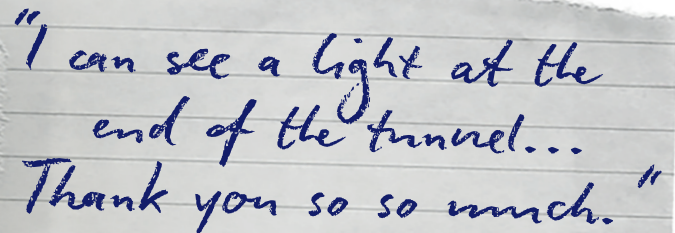 "I can see a light at the
end of the tunnel...
Thank you so so much."